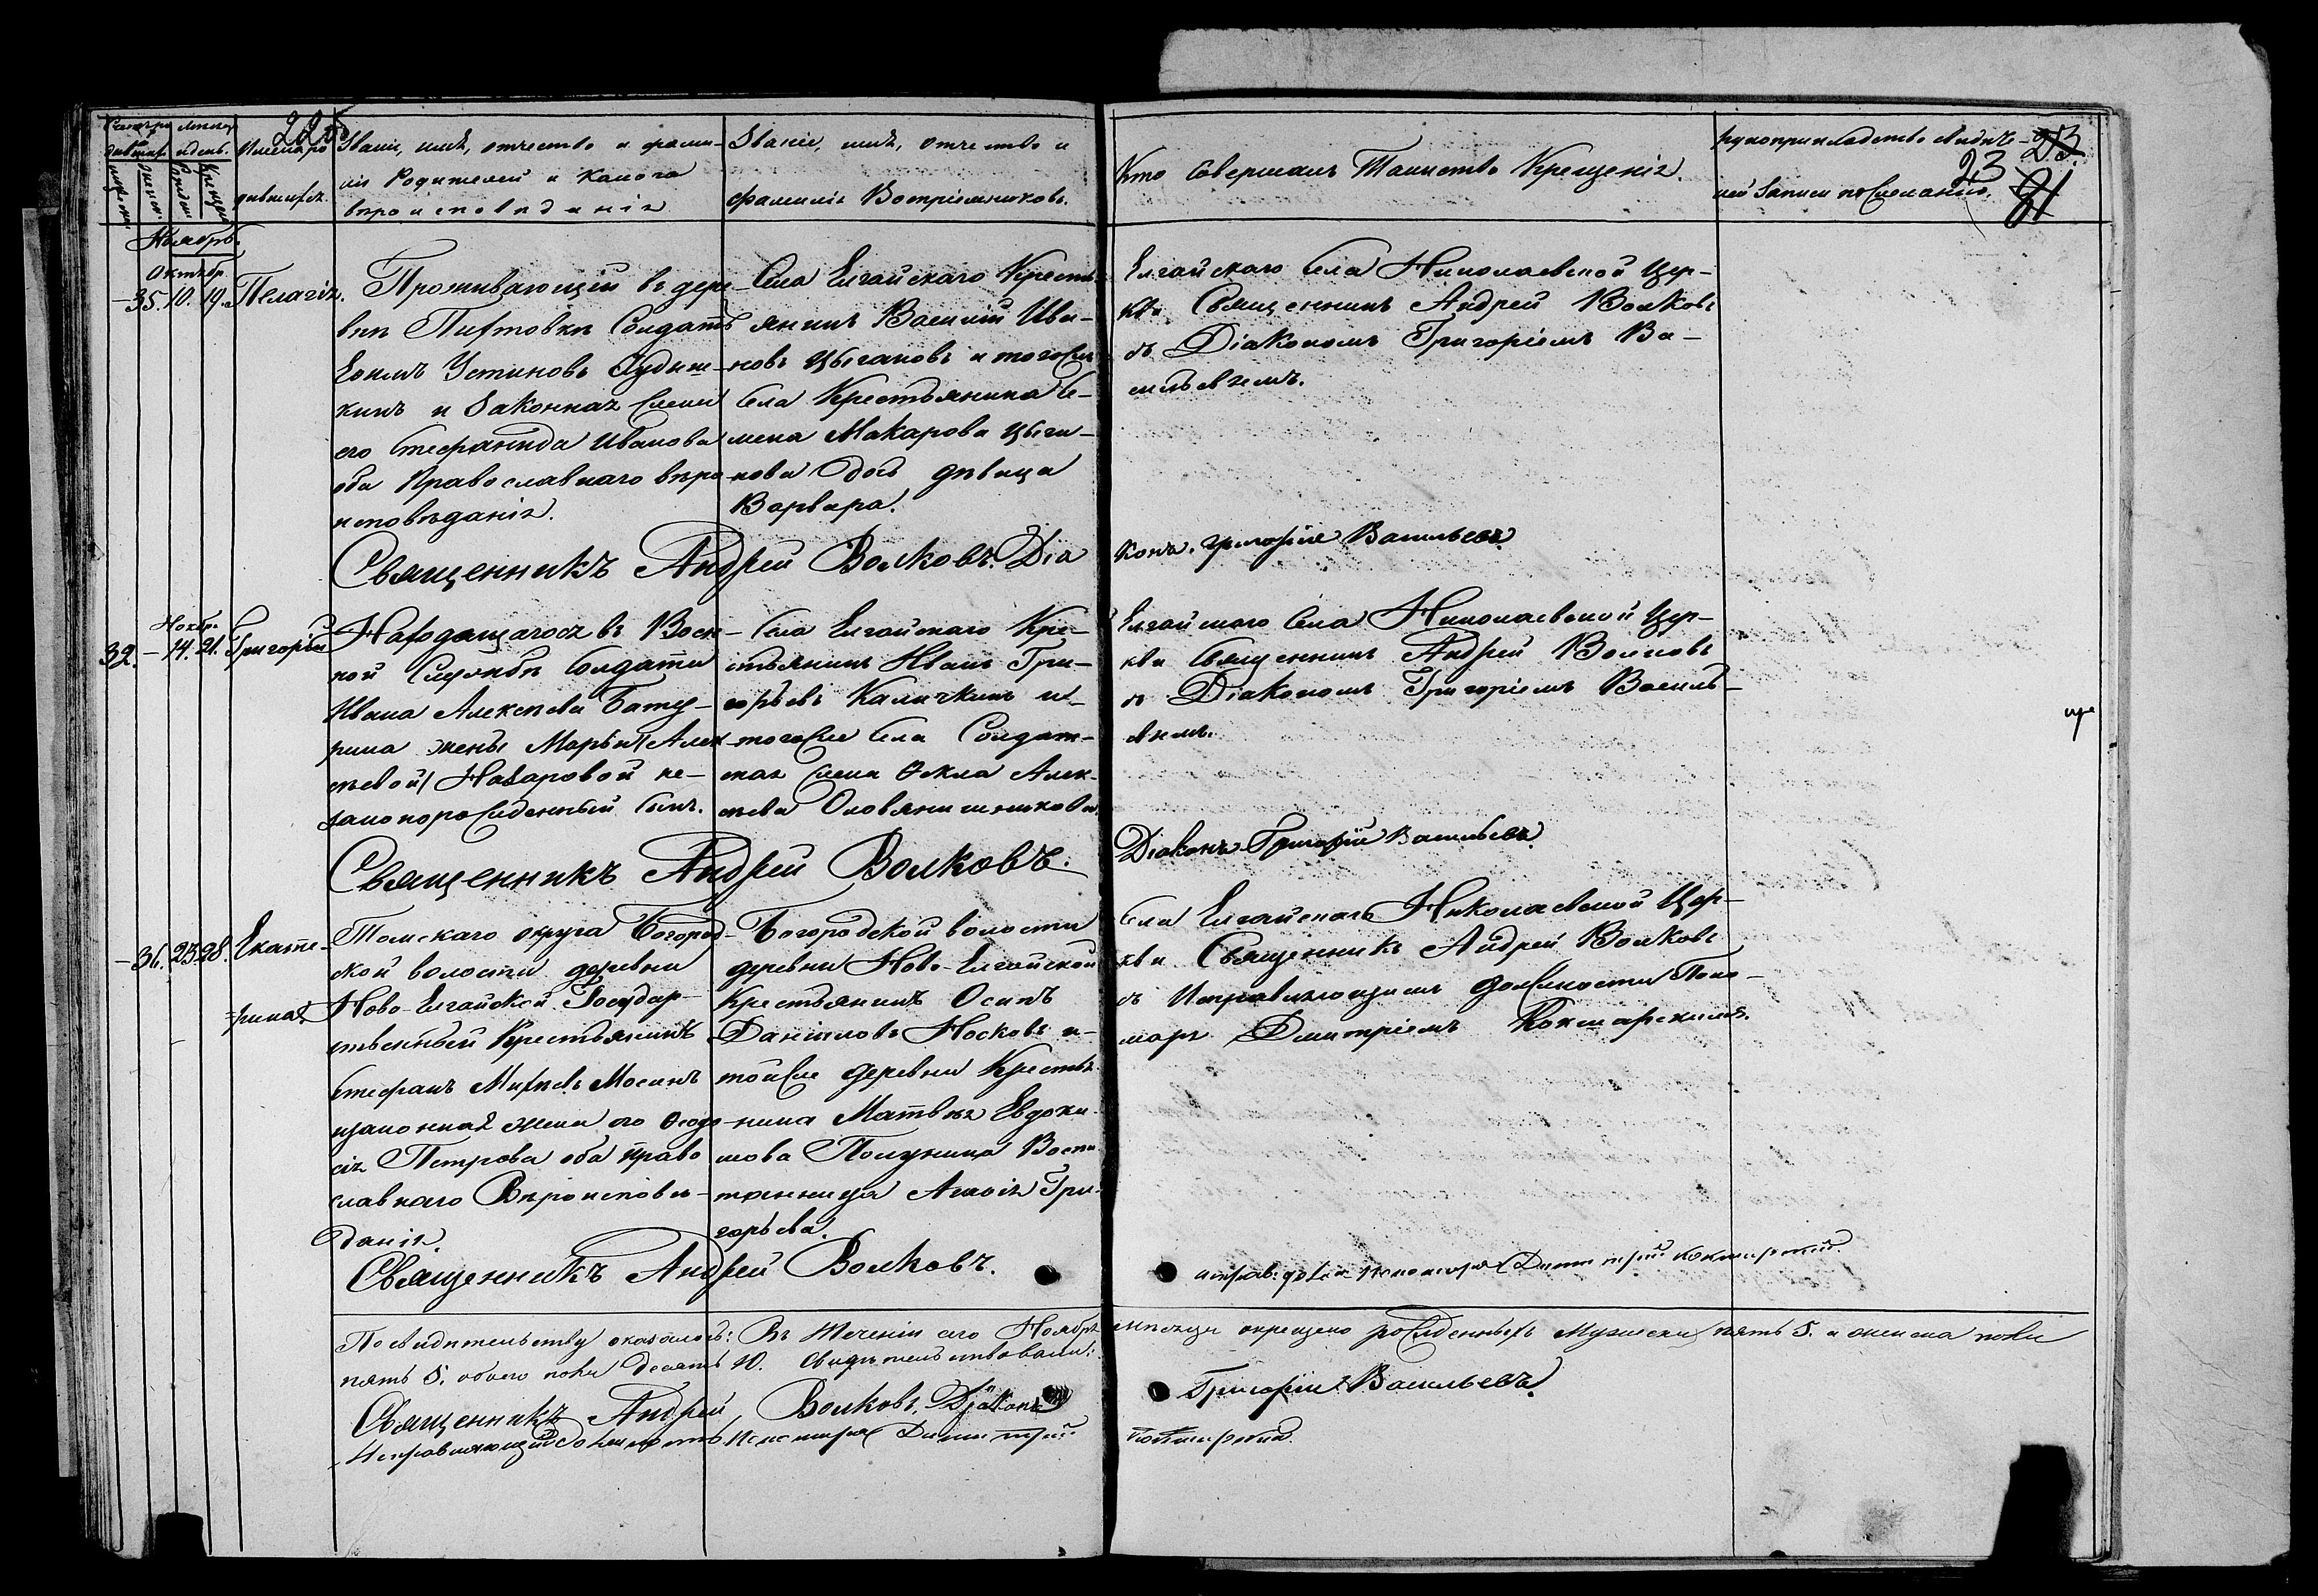 225
23.
23
81
Счетъ ро- Мѣсяцъ
дивших. и день. Имена ро Званіе, имѣ, отчество и фами- Званіе, имѣ, отчество и
дившихся. ліи Родителей и Какого фамиліи Воспріемниковъ.
вѣроисповѣданія
Кто совершалъ Таинство Крещенія.
Рукоприкладство свидѣте-
лей записи по желанію.
Ноябрь.
Октябр.
35. 10. 19. Пелагія.
Проживающій въ дере-
внѣ Пихтовкѣ Солдатъ
Екимъ Устиновъ
кинъ и Законная жена
его Стефанида Иванова
оба Православнаго вѣро
исповѣданія.
Села Елгайскаго Кресть
янинъ Василій Ива-
новъ Цыгановъ и того же
села Крестьянина Се-
мена Макарова Цыга-
нова дочь дѣвица
Варвара.
Елгайскаго села Николаевской Цер-
кви Священникъ Андрей Волковъ
съ Діакономъ Григоріемъ Ва-
сильевымъ.
Священникъ Андрей Волковъ. Діа
конъ. Григорій Васильевъ
Ноябр.
32. 14. 21. Григорій
Находящагося въ Воен-
ной Службѣ Солдата
Ивана Алексѣева Бату-
рина жены Марьи (Алек
сѣевой) Назаровой не-
законорожденный сынъ.
Села Елгайскаго Кре-
стьянинъ Иванъ Гри-
горьевъ Каличкинъ и
того же села Солдат-
ская жена Ѳекла Алек-
сѣева Оловянишникова
Елгайскаго села Николаевской Цер-
кви Священникъ Андрей Волковъ
съ Діакономъ Григоріемъ Василь-
евымъ.
Священникъ Андрей Волковъ.
Діаконъ Григорій Васильевъ
36. 23. 28. Екате-
рина
Томскаго округа Богород-
ской волости деревни
Ново-Елгайской Государ-
ственный Крестьянинъ
Стефанъ Михѣевъ Мосинъ
изаконная жена его Ѳеодо
сія Петрова оба право
славнаго Вѣроисповѣ-
данія.
Богородской волости
деревни Ново-Елгайской
Крестьянинъ Осипъ
Даниловъ Носковъ и
той же деревни Крестья
нина Матвѣя Евдоки-
мова Полунина Воспи
танница Гри-
горьева.
села Елгайскаго Николаевской Цер-
кви Священникъ Андрей Волковъ
съ Исправляющимъ должность Поно-
маря Димитріемъ Кокшарскимъ.
Священникъ Андрей Волковъ.
исправ: долж: пономаря Димитрій Кокшарскій.
По свидѣтельству оказалось: Въ теченіи сего Ноября мѣсяца окрещено рожденныхъ Мужеска пять 5. и женска пола
пять 5. обоего пола Десять 10. Свидѣтельствовали:
Священникъ Андрей Волковъ. Діаконъ Григорій Васильевъ.
Исправляющій должность Пономаря Димитрій Кокшарскій.